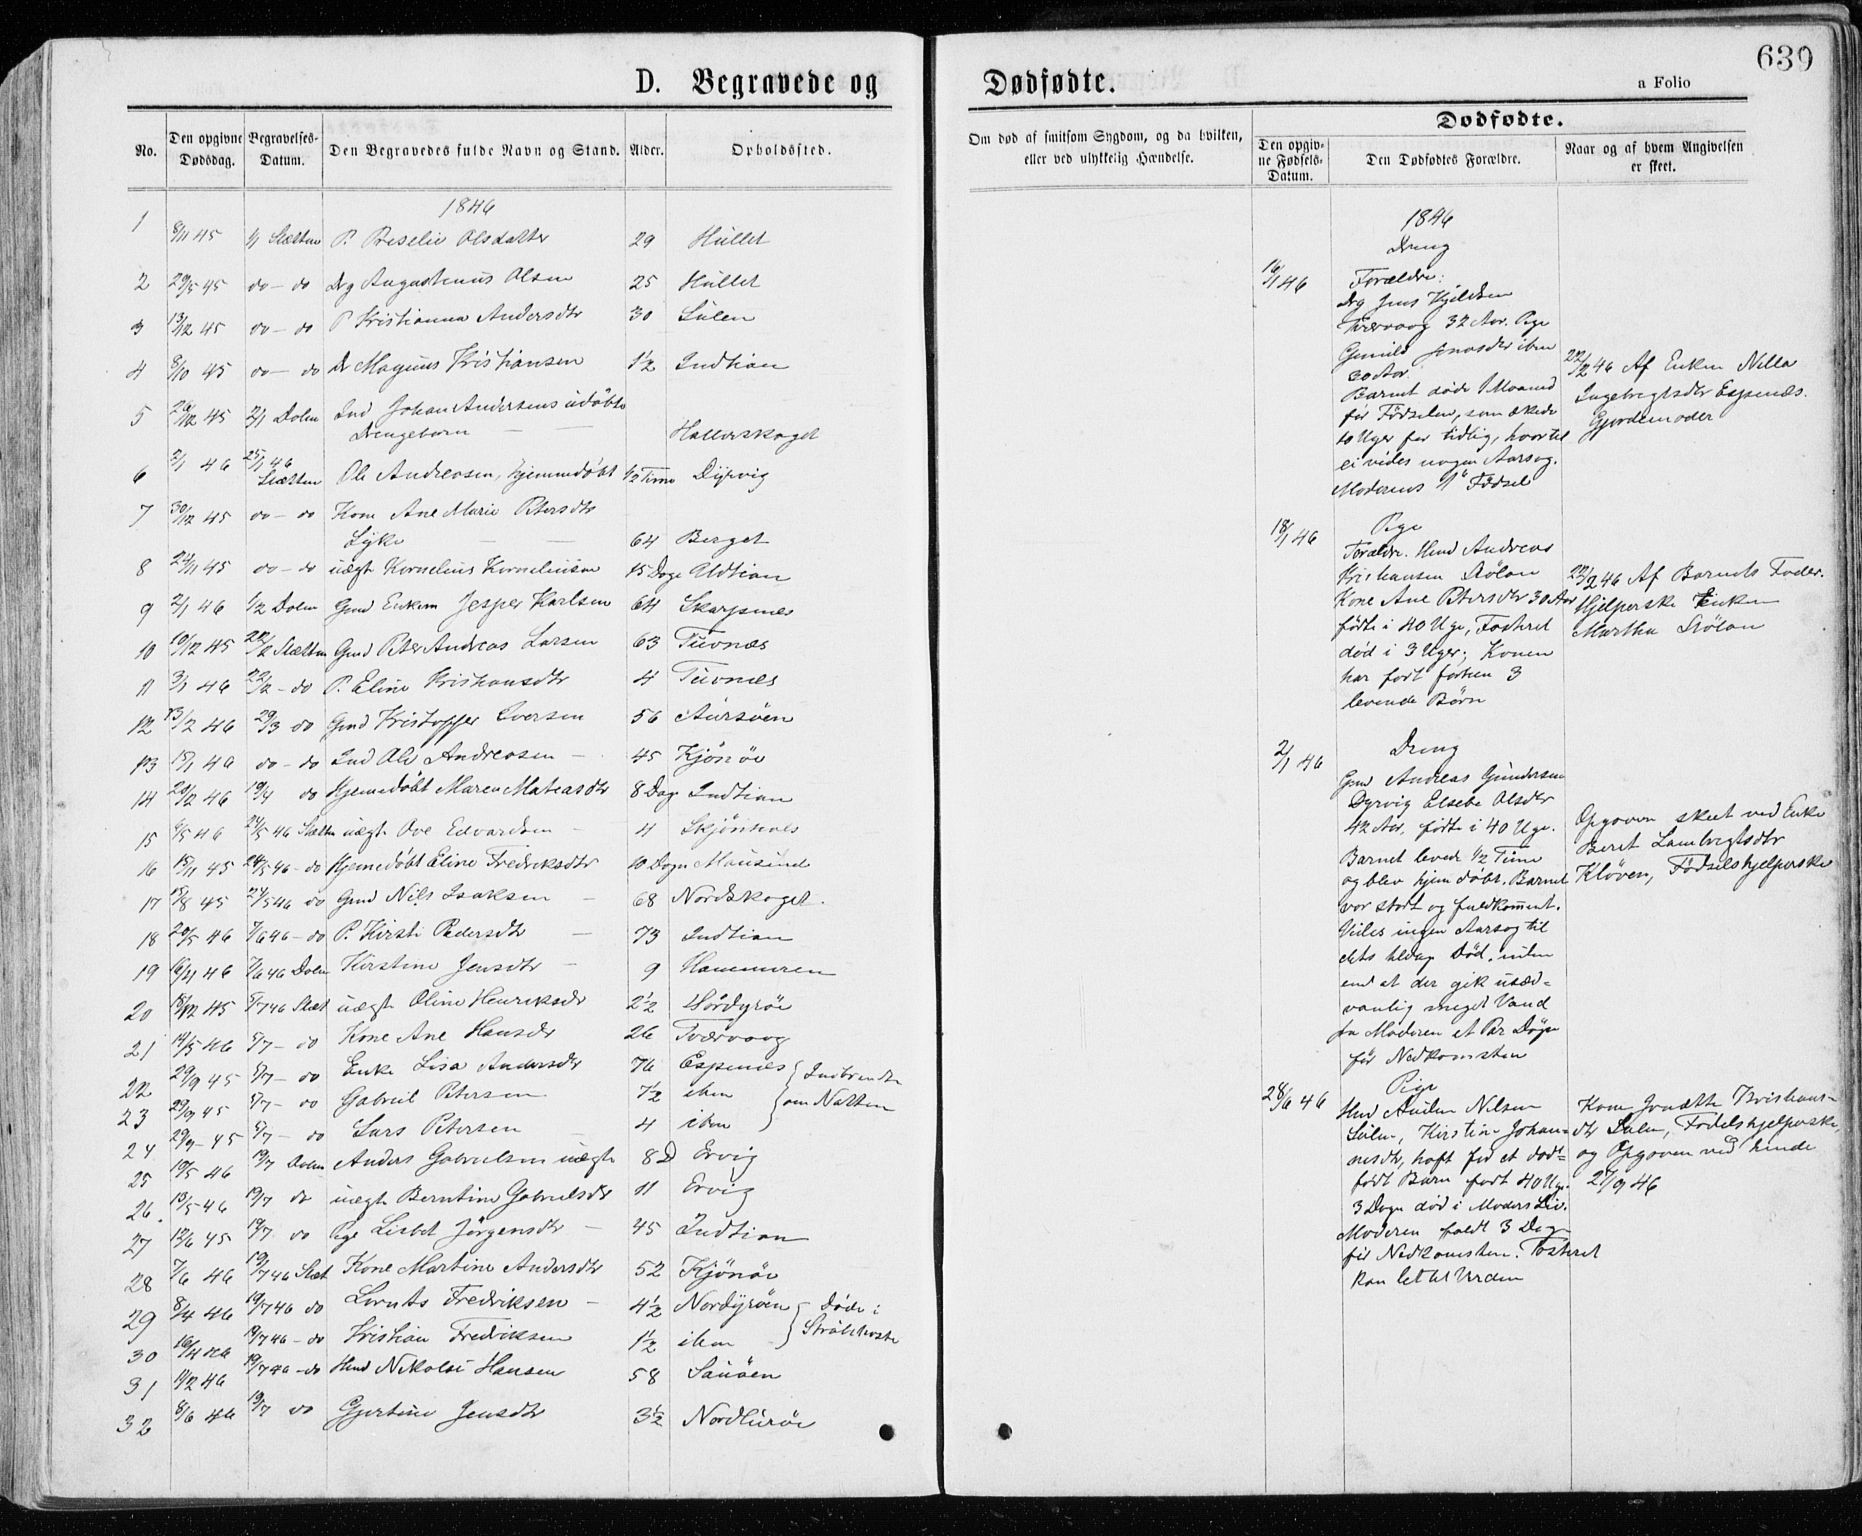 D. Begravede og
No. Den opgivne Dødsdag. Begravelses-Datum. Den Begravedes fulde Navn og Stand. Alder. Opholdssted.
1846
1 8/11 45 1/1 Sletten P. Beselie Olsdatter 29 Hullet
2 29/5 45 do - do Drg Augustinus Olsen 25 Hullet
3 13/12 45 do - do P Kristianna Andersdtr 30 Sulen
4 8/10 45 do - do Dr Magnus Kristiansen 1½ Indtian
5 26/12 45 2/1 Dolm Ind Johan Andersens udøbte
Drengebarn - Hallerskaget
6 2/1 46 25/1 46 Sletten Ole Andreasen, hjemmedøbt ½ Time Dyrvig
7 30/12 45 do - do Kone Ane Marie Petersdtr
Lyke - - 64 Berget
8 24/11 45 do - do uægt Kornelius Korneliusen 15 Dage Uldtian
9 2/1 46 1/2 Dolm Gmd Enkem Jesper Karlsen 64 Skarpnes
10 10/12 45 22/2 Sletten Gmd Peter Andreas Larsen 63 Tuvnæs
11 3/1 46 22/2 - do P. Eline Kristiansdtr 4 Tuvnes
12 13/2 46 29/3 do Gmd Kristopher Iversen 56 Aursøen
13 15/1 46 do - do Ind Ole Andreasen - 45 Kjönøe
14 20/2 46 19/4 do Hjemedøbt Maren Mateasdtr 8 Dage Indtian
15 6/5 46 24/5 46 Sletten uægt Ove Edvardsen - 4 Skjönhals
16 15/11 45 24/5 46 - do Hjemedøbt Eline Fredriksdtr 10 Dage Mausund
17 15/8 45 24/5 46 do Gmd Nils Isaksen - 68 Nordskaget.
18 20/5 46 7/6 46 - do P. Kirsti Pedersdtr - 73 Indtian
19 16/4 46 7/6 46 Dolm Kirstine Jensdtr - 9 Hammeren
20 18/12 45 5/7 46 Slet uægt Oline Henriksdtr 2½ Nordyrøe
21 14/5 46 5/7 - do Kone Ane Hansdtr 26 Tværvaag
22 29/9 45 5/7 - do Enke Lisa Andersdtr 76 Espenæs Indbrændte
23 29/9 45 5/7 - do Gabriel Petersen 7½ ibm om Natten
24 29/9 - 45 5/7 - do Lars Petersen - 4 ibm
25 19/5 46 19/7 Dolm Anders Gabrielsen uægte 8 D Ervig
26. 19/5 46 19/7 do uægt Berntine Gabrielsdtr 11 Ervig
27 12/6 45 19/7 do Pige Lisbet Jørgensdtr - 45 Indtian
28 7/6 46 19/7 46 Slet Kone Martine Andersdtr 52 Kjönøe
29 8/4 46 19/7 46 do Lornts Fredriksen - 4½ Nordyrøen Døde i
30 16/4 46 19/7 46 - do Kristian Fredriksen 1½ ibm Strubehoste
31 11/2 46 19/7 46 - do Hmd Nikolai Hansen 58 Sauøen
32 8/6 46 19/7 do Gjertine Jensdtr 3½ Nordlurøe
639
Dødfødte. a Folio
Om død af smitsom Sygdom, og da hvilken, eller ved ulykkelig Hændelse.
Dødfødte.
Den opgivne Fødsels-Datum. Den Dødfødtes Forældre. Naar og af hvem Angivelsen er skeet.
1846
Dreng
16/1 46 Forældre:
Drg Jens Kjeldsen
Tværvaag 32 Aar. Pige
Gunild Jonasdtr ibm
30 Aar.
Barnet døde 1 Maaned
før Fødselen, som skede
10 Uger før tidlig, hvortil
ei vides nogen Aarsag.
Moderens 1ste Fødsel
22/2 46 Af Enken Nilla
Ingebregtsdtr Espenæs.
Gjordemoder
18/1 46 Pige
Forældre. Hmd Andreas
Kristiansen Stølan
Kone Ane Petersdtr 30 Aar
fødte i 40 Uge, Fosteret
død i 3 Uger; Konen
har født førhen 3
levende Børn
22/2 46 Af Barnets Fader.
Hjelperske Enken
Martha Stølan
2/1 46 Dreng
Gmd Andreas Gundersen
Dyrvig Elsebe Olsdtr
42 Aar, fødte i 40 Uge.
Barnet levede ½ Time
og blev hjemdøbt. Barnet
var stort og fuldkomment.
Vides ingen Aarsag til
dets tidlige Død, uden
end at der gik usæd-
vanlig meget Vand
fra Moderen et Par Døgn
før Nedkomsten
Opgaven skeet ved Enke
Beret Lambregtsdtr
Kløven, Fødselshjelperske
28/6 46 Pige
Hmd Nilsen
Sulen, Kirstine Johan-
nesdtr, haft før et død-
født Barn født 40 Uge.
3 Dage død i Moders Liv.
Moderen faldt 3 Dage
før Nedkomsten. Fosteret
kom let til Verden
Kone Jonætte Kristians-
dtr Sulen, Fødselshjelperske,
og Opgaven ved hende
27/9 46